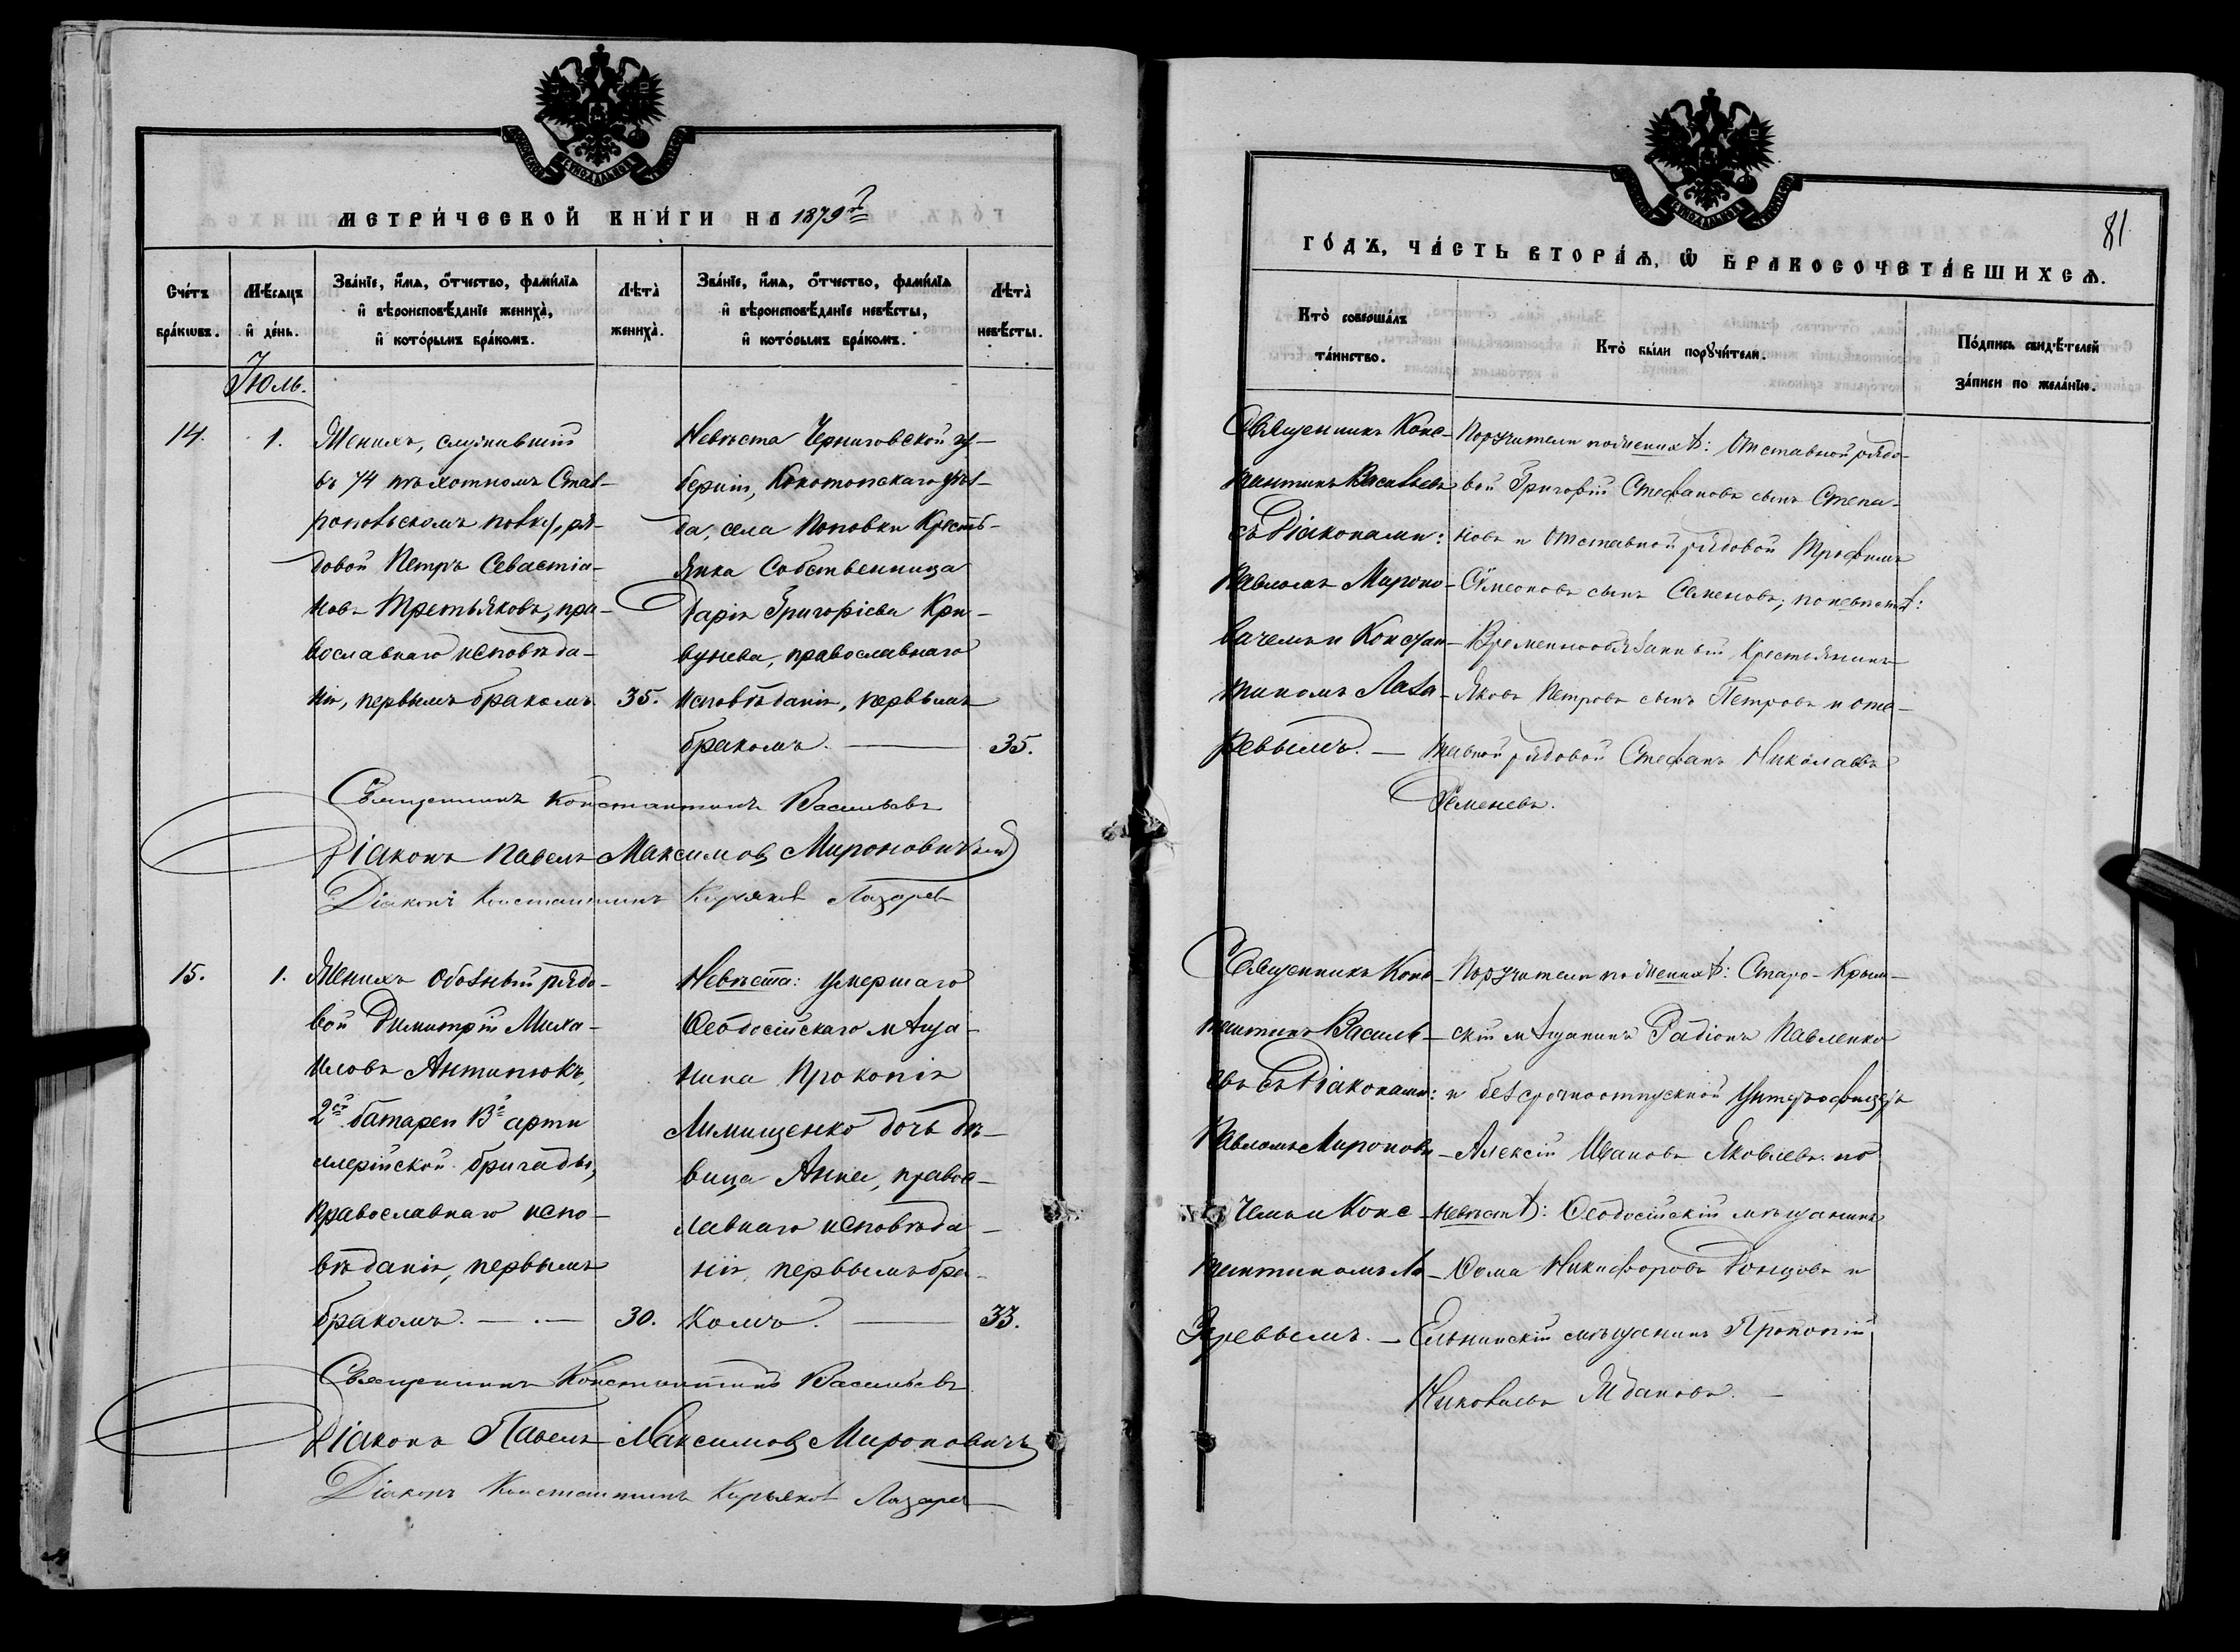 МЕТРИЧЕСКОЙ КНИГИ НА 1879й
Счетъ браковъ.
Мѣсяцъ и день.
Званіе, имя, отчество, фамилія и вѣроисповѣданіе жениха, и которымъ бракомъ.
Лѣта жениха.
Званіе, имя, отчество, фамилія и вѣроисповѣданіе невѣсты, и которымъ бракомъ.
Лѣта невѣсты.
Іюль.
14.
1.
Женихъ, служившій
въ 74 пѣхотномъ Став-
ропольскомъ полку, ря-
довой Петръ Севастіа-
новъ Третьяковъ, пра-
вославнаго исповѣда-
нія, первымъ бракомъ
35.
Невѣста Черниговской гу-
берніи, Конотопскаго уѣз-
да, села Поповки Кресть-
янка Собственница
Дарія Григоріева Кри-
вушева, православнаго
исповѣданія, первымъ
бракомъ. —
35.
Священникъ Константинъ Васильевъ
Діаконъ Павелъ Максимовъ Мироновичъ
Діаконъ Константинъ Кирьяковъ Лазаревъ
15.
1.
Женихъ Обозный рядо-
вой Димитрій Миха-
иловъ Антипюкъ,
2ой батареи 13й арти
ллерійской бригады,
Православнаго испо-
вѣданія, первымъ
бракомъ. — . —
30.
Невѣста: умершаго
Ѳеодосійскаго мѣща-
нина Прокопія
Лимищенко дочь дѣ-
вица Анна, правос-
лавнаго исповѣда-
нія, первымъ бра-
комъ. —
33.
Священникъ Константинъ Васильевъ
Діаконъ Павелъ Максимовъ Мироновичъ
Діаконъ Константинъ Кирьяковъ Лазаревъ
81.
ГОДЪ, ЧАСТЬ ВТОРАЯ, Ѡ БРАКОСОЧЕТАВШИХСЯ.
Кто совершалъ таинство.
Кто были поручители.
Подпись свидѣтелей записи по желанію.
Священникъ Конс-
тантинъ Васильевъ
съ Діаконами:
Павломъ Мироно-
вичемъ и Констан-
тиномъ Лаза-
ревымъ. —
Поручители по женихѣ: Отставной рядо-
вой Григорій Стефановъ сынъ Степа-
новъ и Отставной рядовой Трофимъ
Симеоновъ сынъ Семеновъ; по невѣстѣ:
Временнообязанный Крестьянинъ
Яковъ Петровъ сынъ Петровъ и отс-
тавной рядовой Стефанъ Николаевъ
Семеневъ.
Священникъ Конс-
тантинъ Василь-
евъ съ Діаконами:
Павломъ Миронов-
чемъ и Конс-
тантиномъ Ла-
заревымъ. —
Поручители по женихѣ: Старо-Крым-
скій мѣщанинъ Радіонъ Павленко
и безсрочноотпускной Унтеръ-офицеръ
Алексій Ивановъ Яковлевъ: по
невѣстѣ: Ѳеодосійскій мѣщанинъ
Ѳома Никифоровъ Донцовъ и
Ельнинскій мѣщанинъ Прокопій
Ждановъ. —